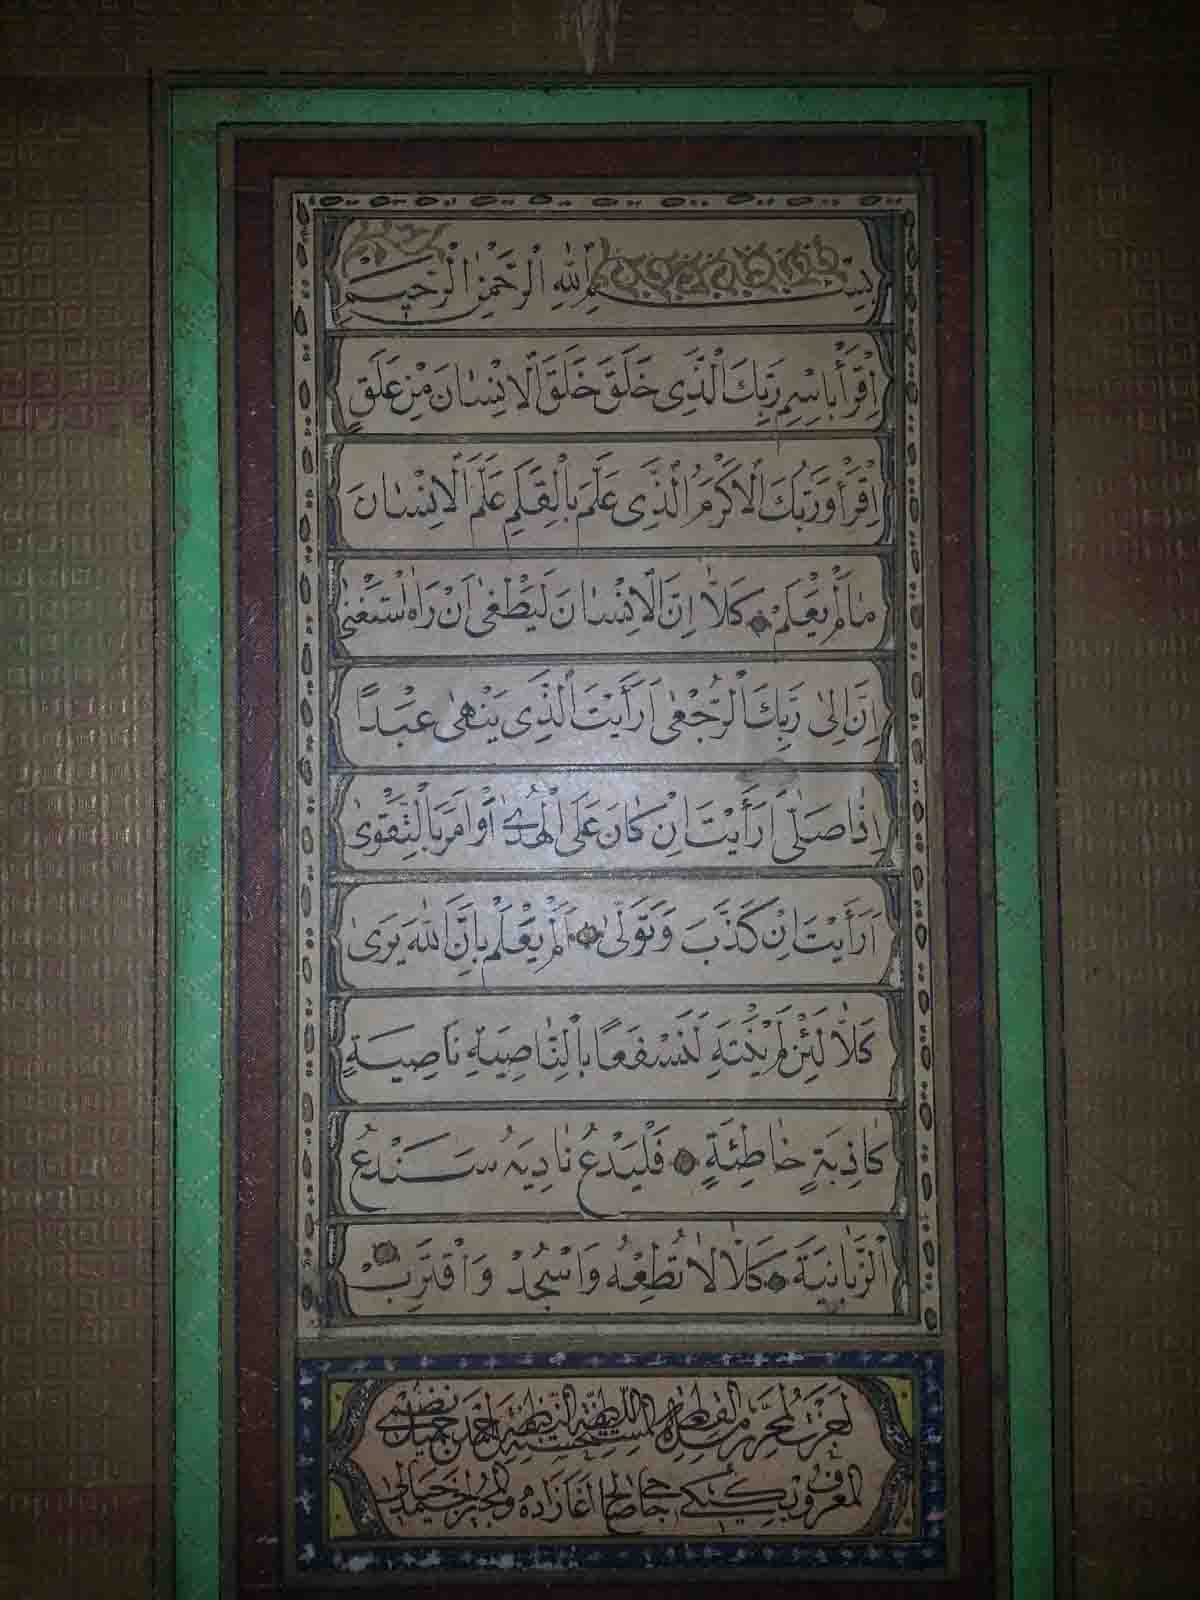 بِسْمِ اللهِ الرَّحْمٰنِ الرَّحِيمِ
اِقْرَأْ بِاسْمِ رَبِّكَ الَّذِى خَلَقَ خَلَقَ الْاِنْسَانَ مِنْ عَلَقٍ
اِقْرَأْ وَرَبُّكَ الْاَكْرَمُ الَّذِى عَلَّمَ بِالْقَلَمِ عَلَّمَ الْاِنْسَانَ
مَا لَمْ يَعْلَمْ كَلَّا اِنَّ الْاِنْسَانَ لَيَطْغٰى اَنْ رَاٰهُ اسْتَغْنٰى
اِنَّ اِلٰى رَبِّكَ الرُّجْعٰى اَرَاَيْتَ الَّذِى يَنْهٰى عَبْدًا
اِذَا صَلّٰى اَرَاَيْتَ اِنْ كَانَ عَلَى الْهُدٰى اَوْ اَمَرَ بِالتَّقْوٰى
اَرَاَيْتَ اِنْ كَذَّبَ وَتَوَلّٰى اَلَمْ يَعْلَمْ بِاَنَّ اللهَ يَرٰى
كَلَّا لَئِنْ لَمْ يَنْتَهِ لَنَسْفَعًا بِالنَّاصِيَةِ نَاصِيَةٍ
كَاذِبَةٍ خَاطِئَةٍ فَلْيَدْعُ نَادِيَهُ سَنَدْعُ
الزَّبَانِيَةَ كَلَّا لَا تُطِعْهُ وَاسْجُدْ وَاقْتَرِبْ
المستحسنة احمد
المعروف حاجي صالح اغازاده